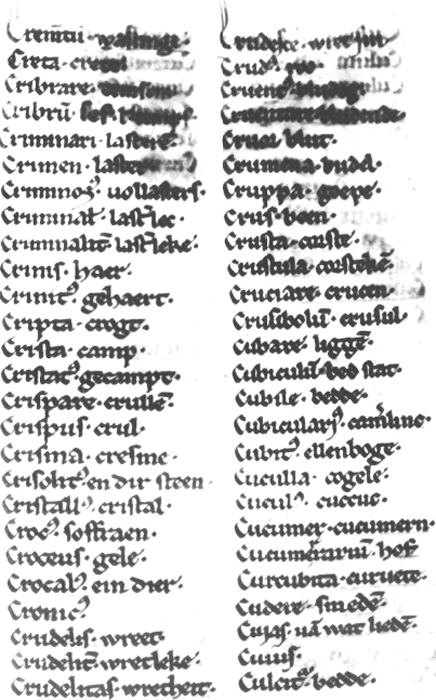 Creta · creta
Cribrare ·
Cribrū ·
Criminari · lastere·
Crimen · laster
Criminos⁹ · vol lasters·
Criminal̄ · last̄lec·
Criminalit̄ · last̄leke·
Crinis · haer·
Crinit⁹ · gehaert·
Cripta · crogt·
Crista · camp·
Cristat⁹ · gecampt·
Crispare · crullē·
Crispus · crul·
Crisma · cresme·
Crisolit⁹ · en dir steen
Cristall⁹ · cristal·
Croc⁹ · soffraen·
Croceus · gele·
Crocal⁹ · ein dier·
Cronic⁹
Crudelis · wreet·
Crudelit̄ · wretleke·
Crudelitas · wretheit·
Crudesce ·
Crud⁹ ·
Cruent⁹ ·
Cruor · blut·
Crumena · budel·
Cruppa · goepe·
Crus · been·
Crusta · corste·
Crustula · corstekē·
Cruciare · crucen·
Crusibolū · crusul·
Cubare · liggē·
Cubiculū · bed stat·
Cubile · bedde·
Cubiculari⁹ ·
Cubit⁹ · ellenboge·
Cuculla · cogele·
Cucul⁹ · cuccuc·
Cucumer · cucumern·
Cucumerariū · hof
Curcubita · curuete·
Cudere · smedē·
Cuias · uā wat liedē·
Cuius·
Culcit⁹ · bedde·